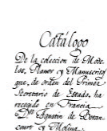 Catálogo
De la coleccion de Mode-
los, Planos y Manuscritos
que, de orden del Primer
Secretario de Estado, ha
recogido en Francia
Dn. Agustin de Betan-
court y Molina